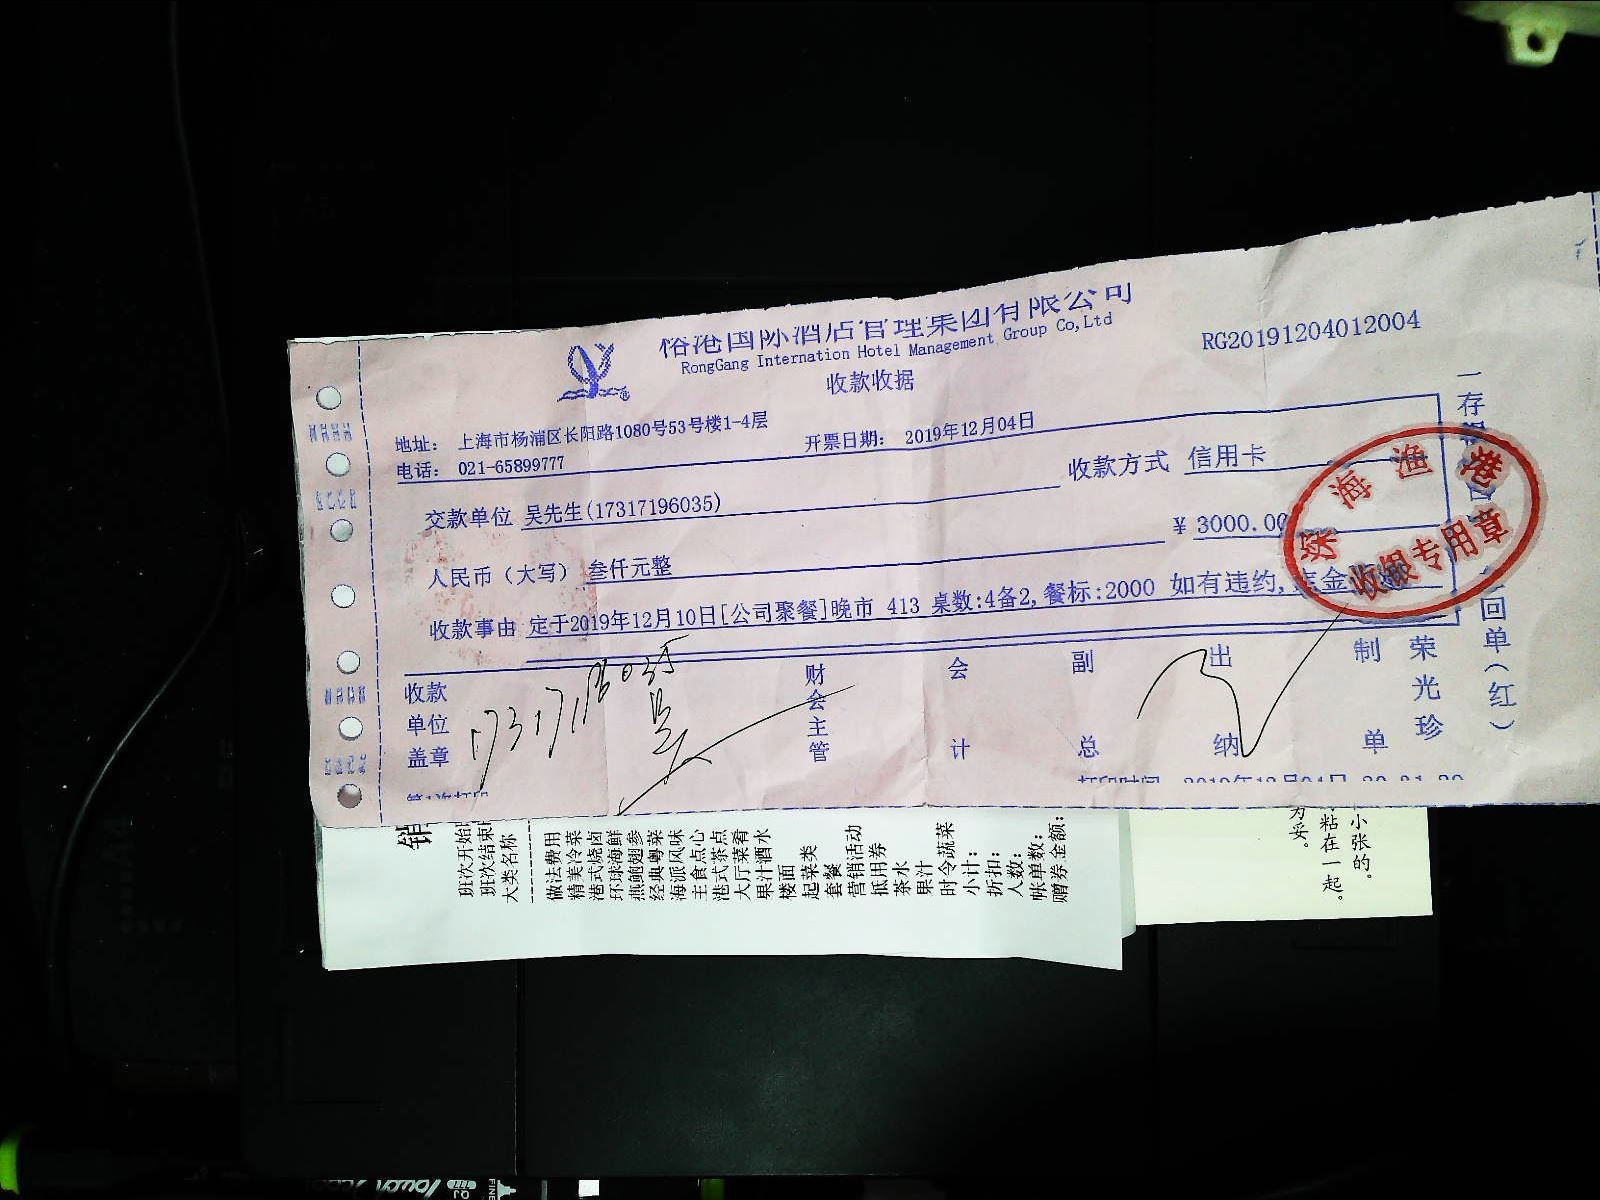 裕港国际酒店管理集团有限公司
RongGang Internation Hotel Management Group Co,Ltd
收款收据
RG20191204012004
地址: 上海市杨浦区长阳路1080号53号楼1-4层
电话: 021-65899777
开票日期: 2019年12月04日
收款方式 信用卡
交款单位 吴先生(17317196035)
¥ 3000.00
人民币(大写) 叁仟元整
收款事由 定于2019年12月10日[公司聚餐]晚市 413 桌数:4备2,餐标:2000 如有违约,定金
收款单位盖章
财会主管
会计
副总
出纳
制单
荣光珍
回单(红)
深海渔港
收银专用章
打印时间 2019年12月04日
班次开始
班次结束
大类名称
做法费用
精美冷菜
港式烧卤
环球海鲜
燕鲍翅参
经典粤菜
海派风味
主食点心
港式茶点
大厅菜肴
果汁酒水
楼面
起菜类
套餐
营销活动
抵用券
茶水
果汁
时令蔬菜
小计:
折扣:
人数:
帐单数:
赠券金额:
小张的.
粘在一起.
为好.